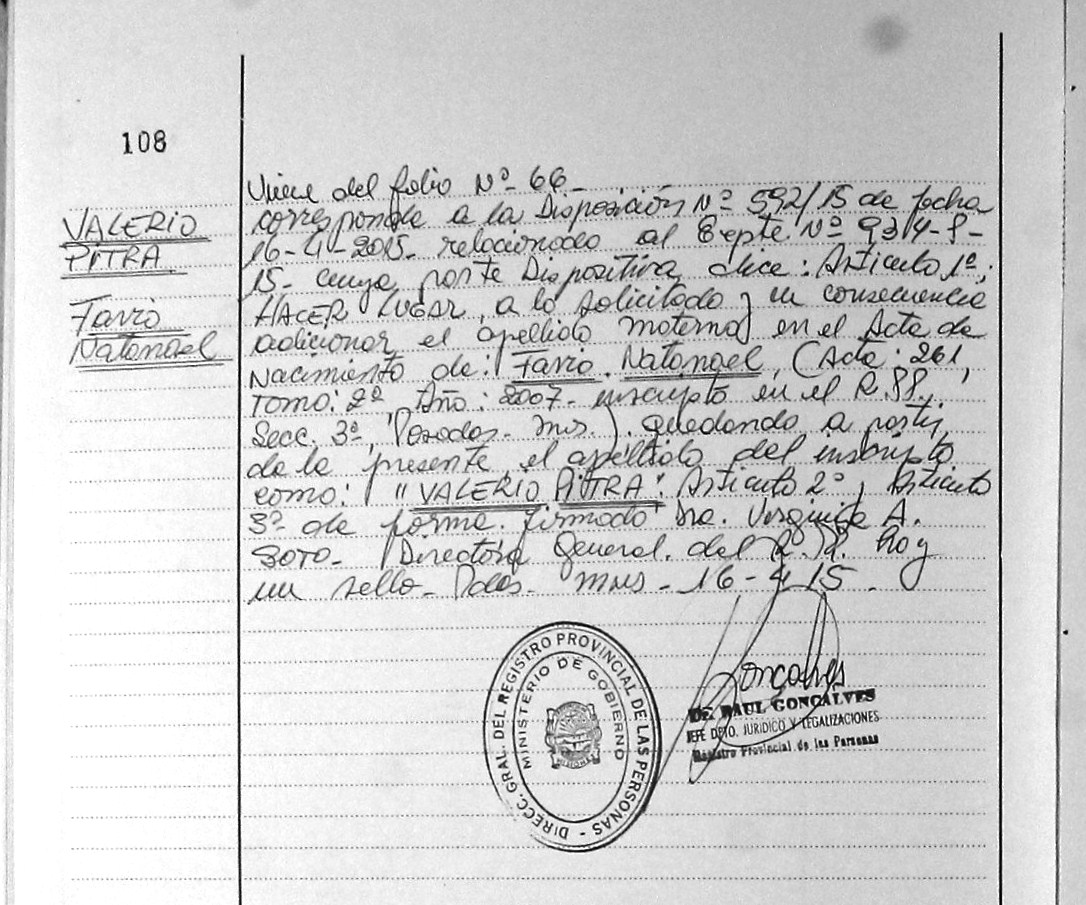 108
VALERIO
PITRA
Favio
Natanael
Viene del folio Nº 66-
corresponde a la Disposición Nº 592/15 de fecha
16-4-2015- relacionado al Expte Nº 9314-P-
15- cuya parte Dispositiva dice: Artículo 1º:
HACER LUGAR, a lo solicitado y en consecuencia
adicionar el apellido materno en el Acta de
Nacimiento de: Favio Natanael, (Acta: 261
Tomo: 2º, Año: 2007- inscripto en el R.PP.,
Secc. 3ª, Posadas- Mns.). quedando a partir
de la presente, el apellido del inscripto
como: "VALERIO PITRA". Artículo 2º, Artículo
3º de forma. firmado Dra. Virginia A.
SOTO- Directora General. del R.P. hay
un sello- Pdas. mns- 16-4-15.
DIRECC. GRAL. DEL REGISTRO PROVINCIAL DE LAS PERSONAS -
MINISTERIO DE GOBIERNO
MISIONES
Goncalves
DR. RAUL GONCALVES
JEFE DPTO. JURIDICO Y LEGALIZACIONES
Registro Provincial de las Personas